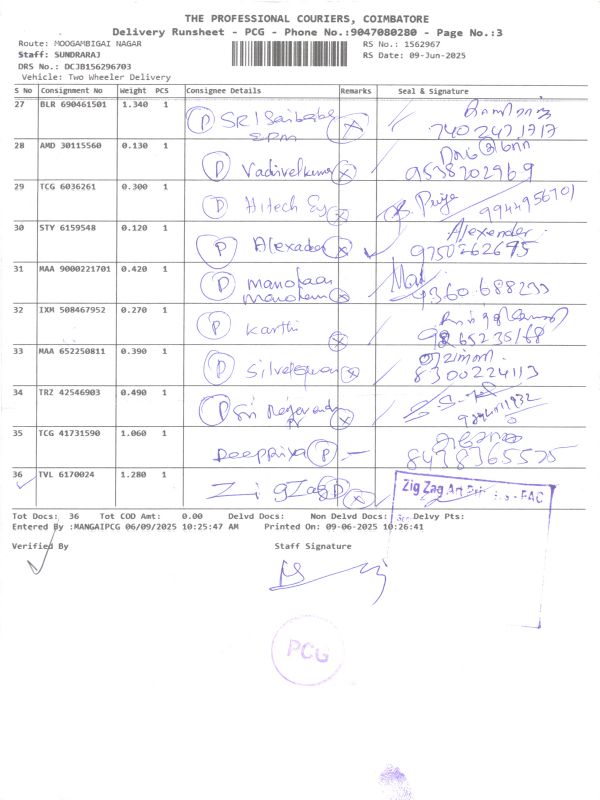 THE PROFESSIONAL COURIERS, COIMBATORE
Delivery Runsheet - PCG - Phone No.:9047080280 - Page No.:3
Route: MOOGAMBIGAI NAGAR
RS No.: 1562967
Staff: SUNDRARAJ
RS Date: 09-Jun-2025
DRS No.: DCJB156296703
Vehicle: Two Wheeler Delivery
S No Consignment No Weight PCS Consignee Details Remarks Seal & Signature
27 BLR 690461501 1.340 1 P SRI Saibaba
740 247 1717
28 AMD 30115560 0.130 1 P Vadivelkumar X
9538202969
29 TCG 6036261 0.300 1 P Hitech X Priya 9944956701
30 STY 6159548 0.120 1 P X Alexender
9750262695
31 MAA 9000221701 0.420 1 P X
9360688233
32 IXM 508467952 0.270 1 P Karthi X
33 MAA 652250811 0.390 1 P X
8300224113
34 TRZ 42546903 0.490 1 P Sri X
35 TCG 41731590 1.060 1 Deeppriya P
36 TVL 6170024 1.280 1 ZigZag P X Zig Zag Art
Tot Docs: 36 Tot COD Amt: 0.00 Delvd Docs: Non Delvd Docs: Delvy Pts:
Entered By :MANGAIPCG 06/09/2025 10:25:47 AM Printed On: 09-06-2025 10:26:41
Verified By Staff Signature
PCG